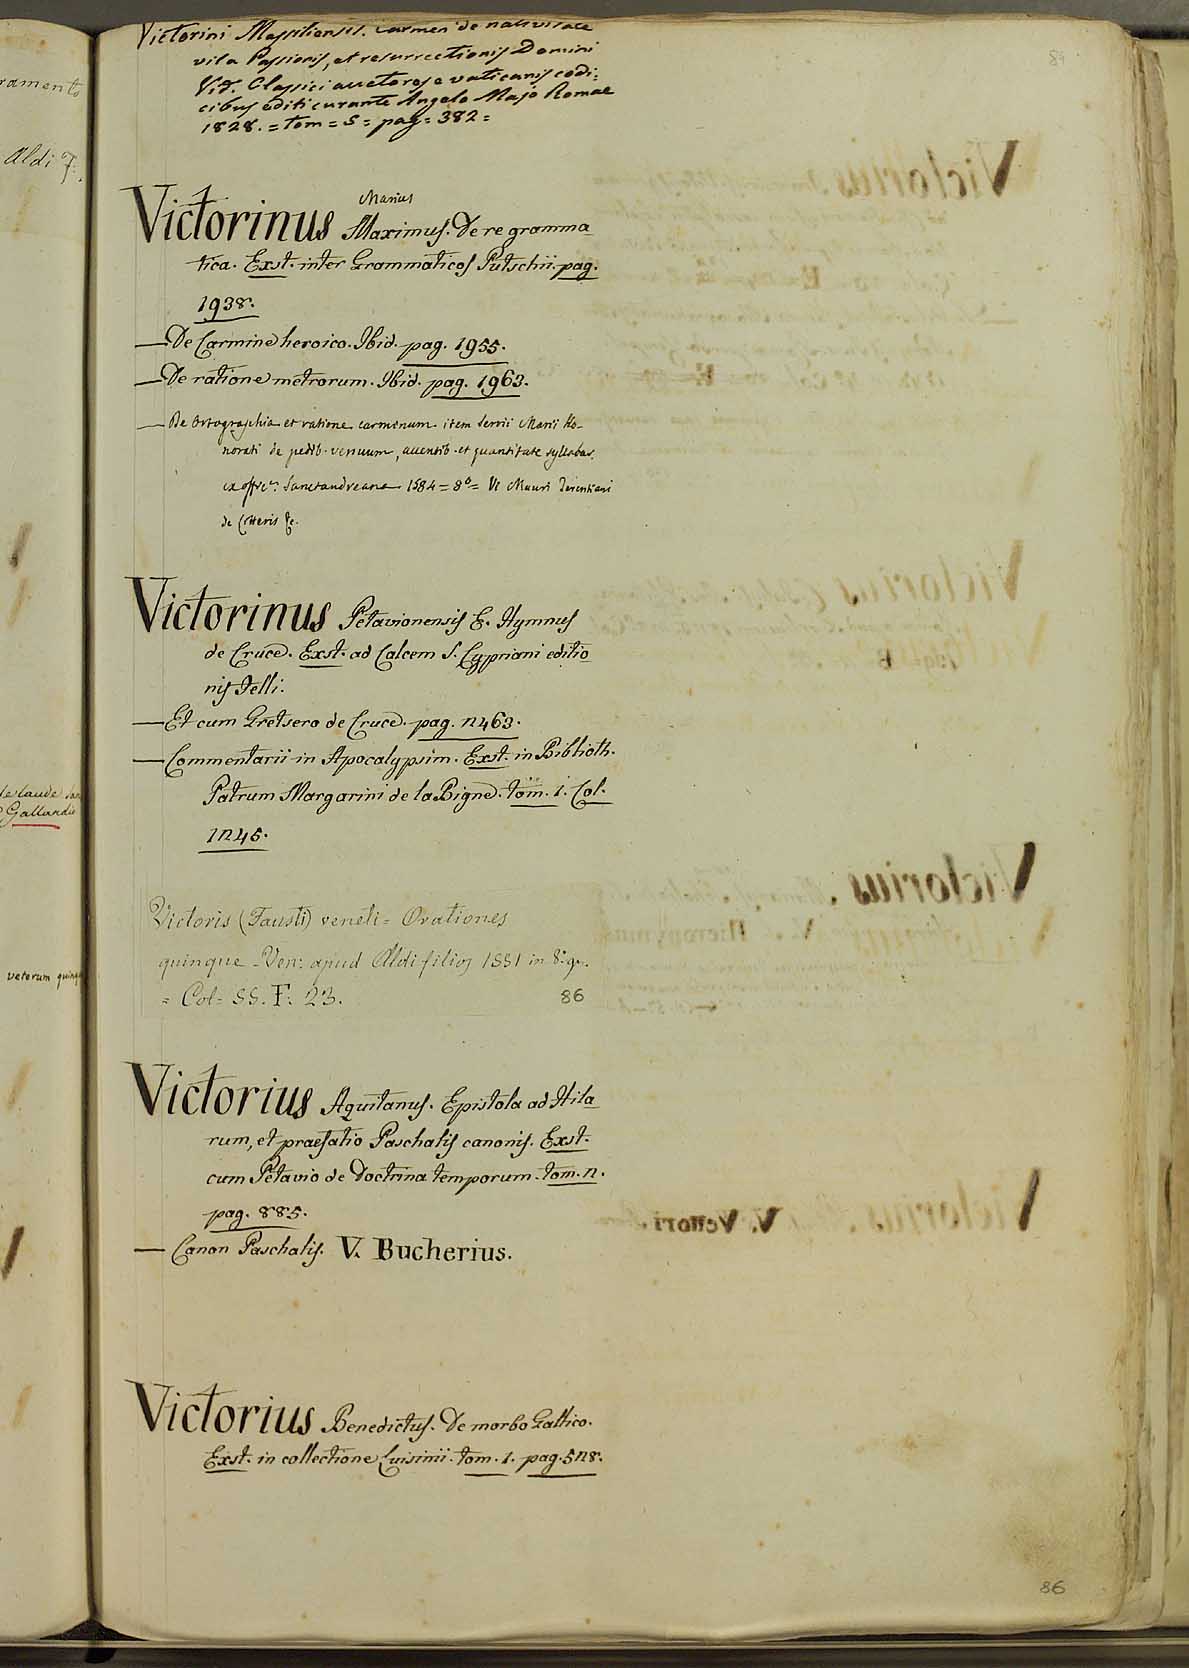 Victorini Massiliensis. Carmen de nativitate
vita Passionis, et resurrectionis Domini
Vid. Classici auctores e vaticanis codi=
cibus editi curante Angelo Majo Romae
1828. = tom = 5 = pag = 382 =
84
Marius
Victorinus Maximus. De re gramma
tica. Exst. inter Grammaticos Putschii. pag.
1938.
— De Carmine heroico. Ibid. pag. 1955.
— De ratione metrorum. Ibid. pag. 1963.
— De Ortographia et ratione carminum item Servii Marii Ho-
norati de pedib. versuum, accentib. et quantitate syllabar.
ex offic. Sanctandreana 1584 = 8° = V. Mauri Terentiani
de Litteris &c.
Victorinus Petavionensis E. Hymnus
de Cruce. Exst. ad Calcem S. Cypriani editio
nis Felli.
— Et cum Gretsero de Cruce. pag. 2463.
— Commentarii in Apocalypsim. Exst. in Biblioth.
Patrum Margarini de la Bigne. tom. 1. Col.
1245.
Victoris (Fausti) veneti = Orationes
quinque - Ven: apud Aldi filios 1551 in 8.°
= Col = SS. F: 23. 86
Victorius Aquitanus. Epistola ad Hila
rum, et praefatio Paschalis canonis. Exst.
cum Petavio de Doctrina temporum. tom. 2.
pag. 885.
— Canon Paschalis. V. Bucherius.
Victorius Benedictus. De morbo Gallico.
Exst. in collectione Luisinii. tom. 1. pag. 528.
86
ramento
Aldi F.
de laude
Gallandio
veterum